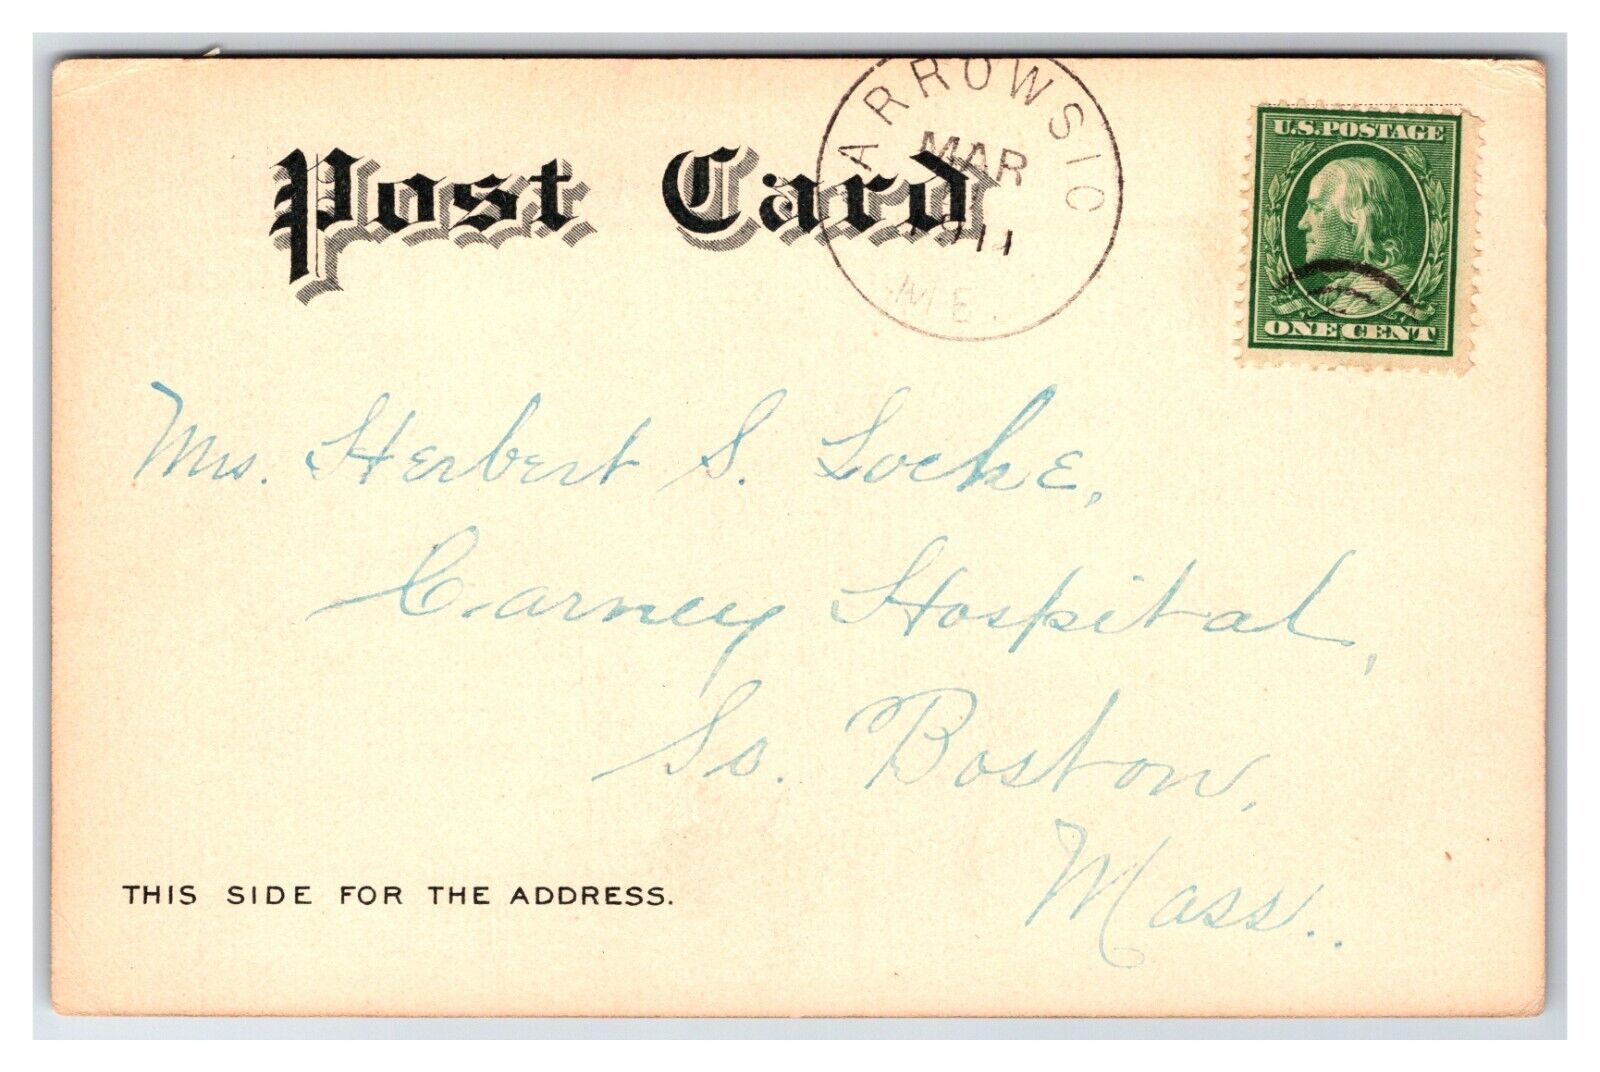 ARROWSIC
MAR
1911
ME.
U.S. POSTAGE
ONE CENT
Post Card
Mrs. Herbert S. Locke,
Carney Hospital,
So. Boston,
Mass..
THIS SIDE FOR THE ADDRESS.